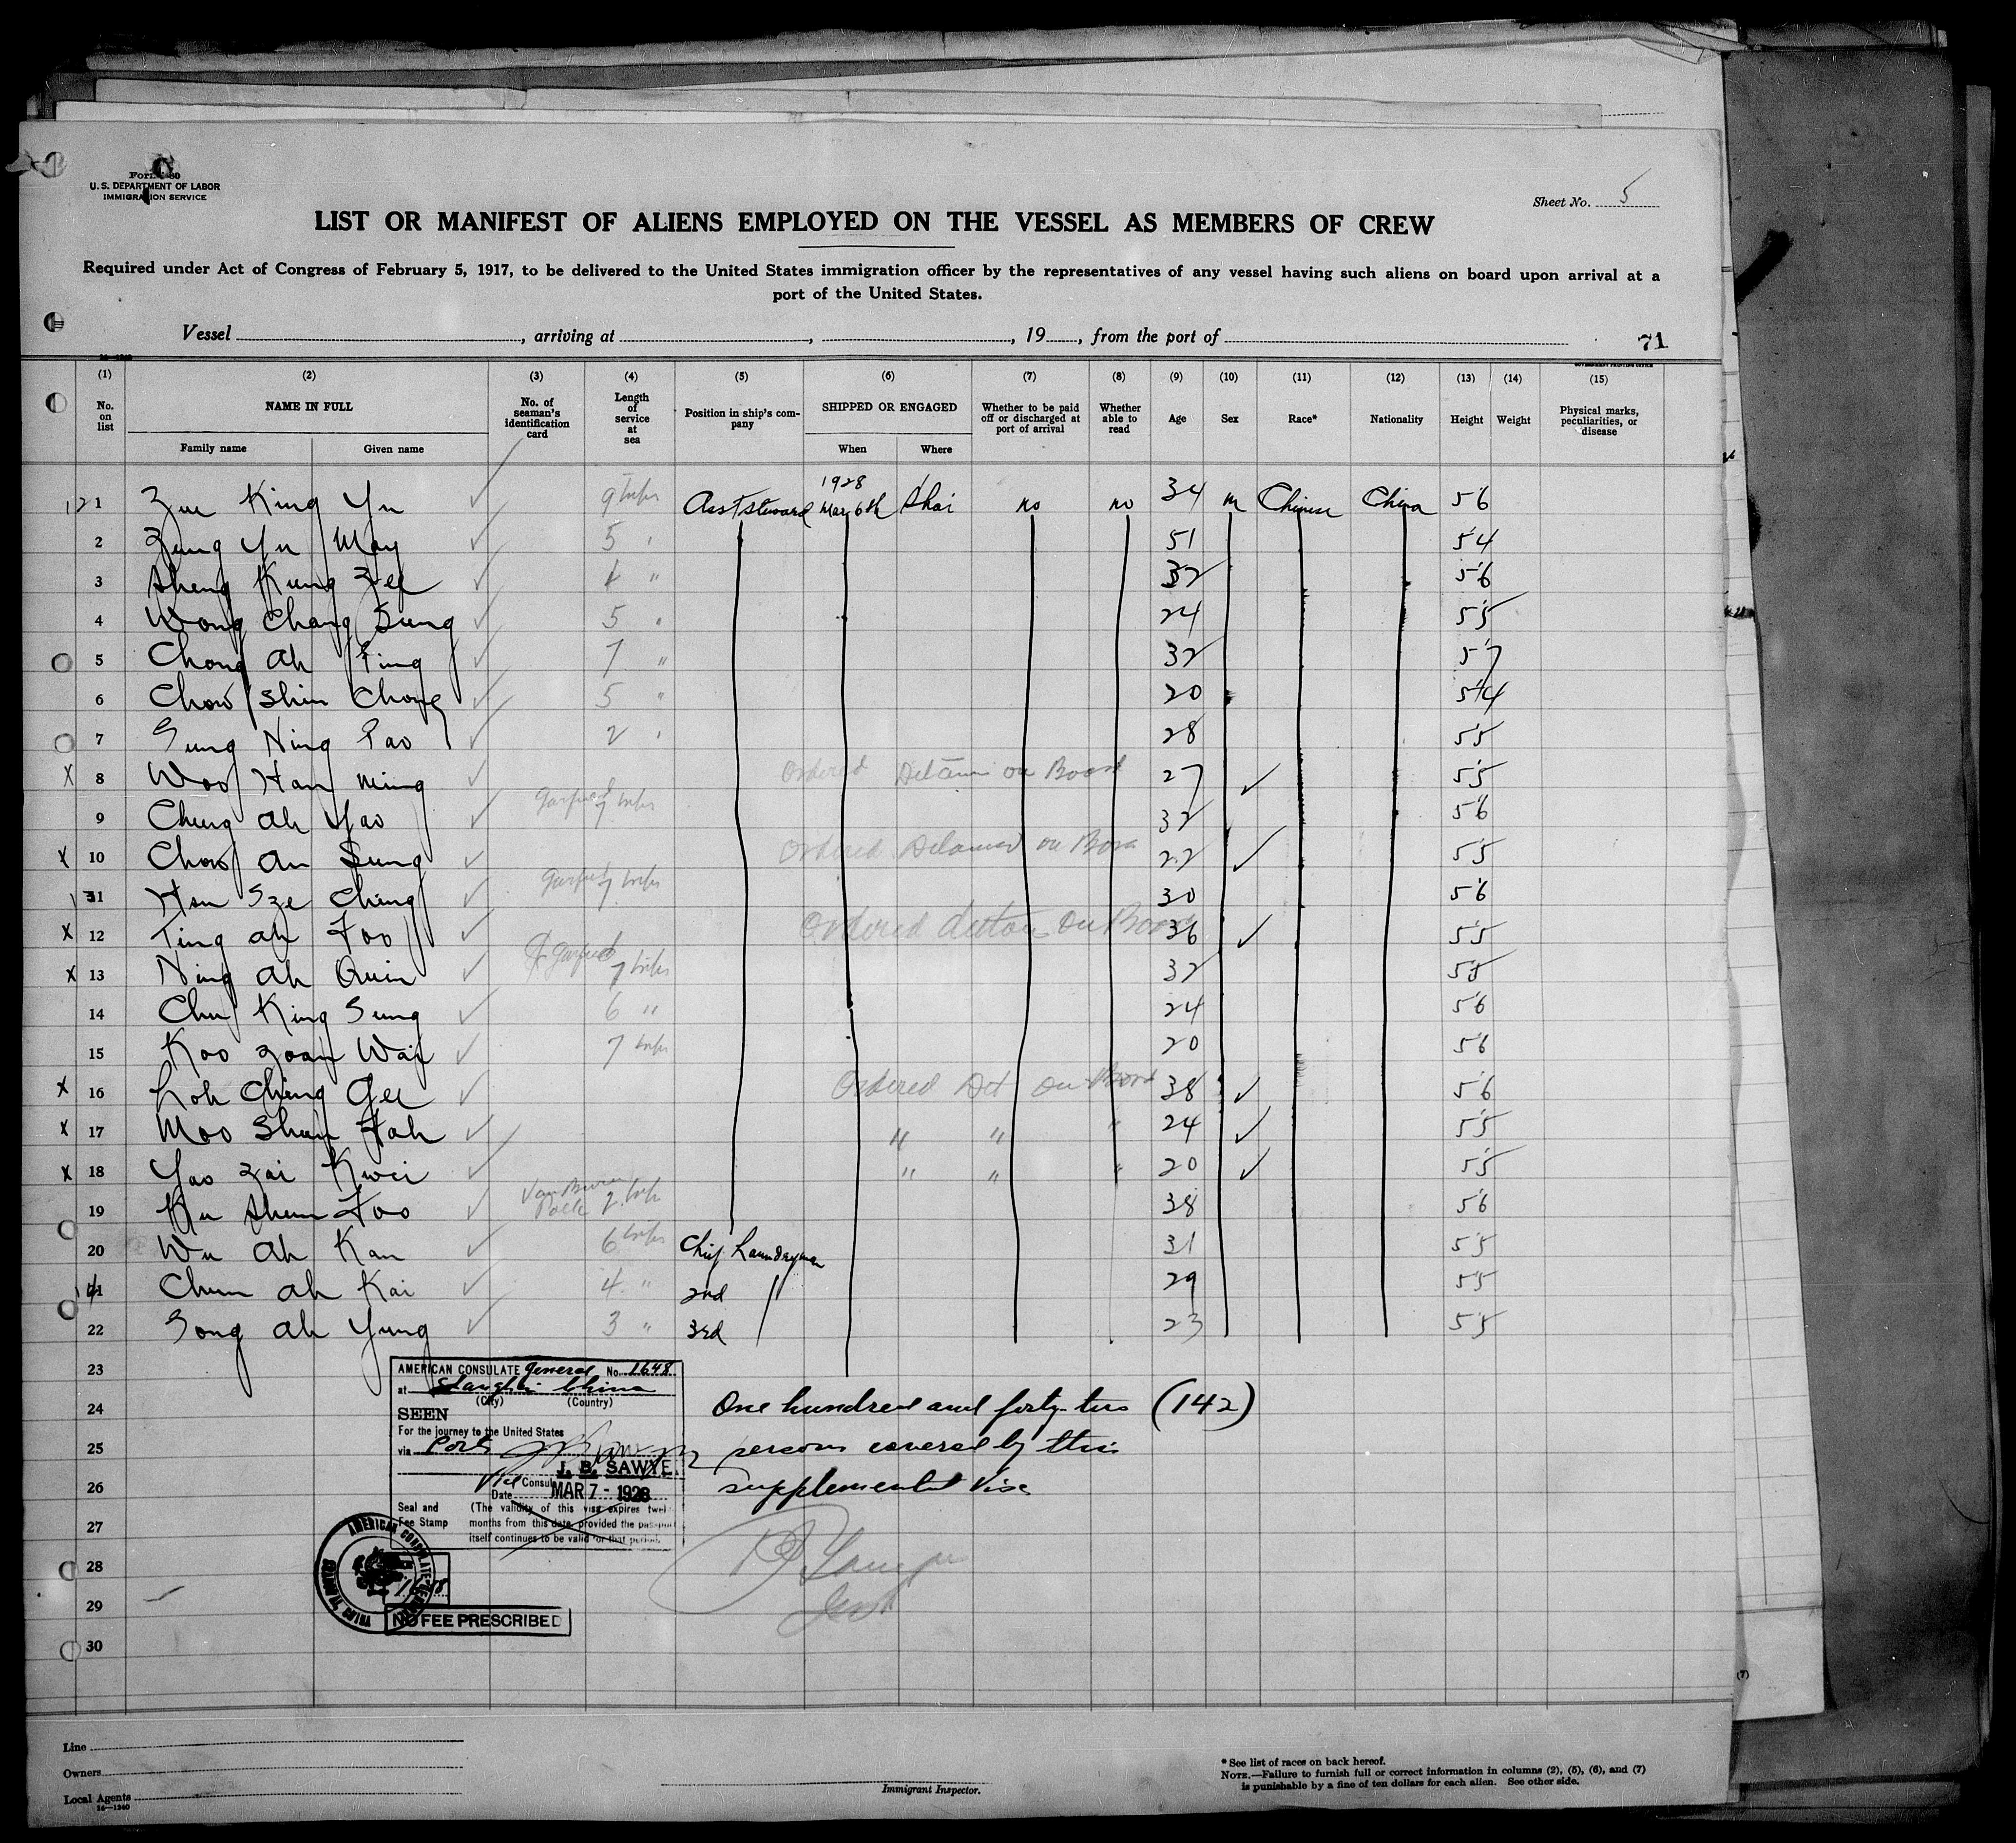 Form 680
U. S. DEPARTMENT OF LABOR
IMMIGRATION SERVICE
Sheet No. 5
LIST OR MANIFEST OF ALIENS EMPLOYED ON THE VESSEL AS MEMBERS OF CREW
Required under Act of Congress of February 5, 1917, to be delivered to the United States immigration officer by the representatives of any vessel having such aliens on board upon arrival at a
port of the United States.
Vessel , arriving at , , 19 , from the port of
71
(1) (2) (3) (4) (5) (6) (7) (8) (9) (10) (11) (12) (13) (14) (15)
No. on list NAME IN FULL No. of seaman's identification card Length of service at sea Position in ship's company SHIPPED OR ENGAGED Whether to be paid off or discharged at port of arrival Whether able to read Age Sex Race* Nationality Height Weight Physical marks, peculiarities, or disease
Family name Given name When Where
1928
1 Zue King Yu 9 trips Asst Steward Mar 6th Shai no no 34 m Chinese China 5'6
2 Zung Yu May 5 " 51 5'4
3 Sheng Kung Zee 1 " 32 5'6
4 Wong Chang Sung 5 " 24 5'5
5 Chong Ah Ping 7 " 32 5'7
6 Chow Shin Chong 5 " 20 5'4
7 Sung Ning Pao 2 " 28 5'5
X 8 Woo Han Ming Ordered Detain on Board 27 5'5
9 Chung Ah Yao Garfield 7 trips 32 5'6
X 10 Chow An Sung Ordered Detained on Board 22 5'5
11 Hsu Sze Ching Garfield 7 trips 30 5'6
X 12 Ting Ah Foo Ordered detain on Board 36 5'5
X 13 Ning Ah Quin Garfield 7 trips 32 5'5
14 Chu King Sung 6 " 24 5'6
15 Koo Zoan Wai 7 trips 20 5'6
X 16 Loh Ching Gee Ordered Det on Board 38 5'6
X 17 Moo Shun Fah " " " 24 5'5
X 18 Yao Zai Kwei " " " 20 5'5
19 Ku Shun Foo Van Buren Polk 2 trips 38 5'6
20 Wu Ah Kan 6 trips Chief Laundryman 31 5'5
21 Chun Ah Kai 4 " 2nd " 29 5'5
22 Song Ah Yung 3 " 3rd 23 5'5
23
24
25
26
27
28
29
30
AMERICAN CONSULATE General No. 1648
at Shanghai China
(City) (Country)
SEEN
For the journey to the United States
via Ports
J. B. SAWYE
Vice Consul
Date MAR 7 - 1928
Seal and Fee Stamp
(The validity of this visa expires twel
months from this date, provided the passport
itself continues to be valid for that period.
AMERICAN CONSULATE GENERAL
NO FEE PRESCRIBED
One hundred and forty-two (142)
persons covered by this
supplemental visa
Line
Owners
Local Agents
14—1240
Immigrant Inspector.
* See list of races on back hereof.
NOTE.—Failure to furnish full or correct information in columns (2), (5), (6), and (7)
is punishable by a fine of ten dollars for each alien. See other side.